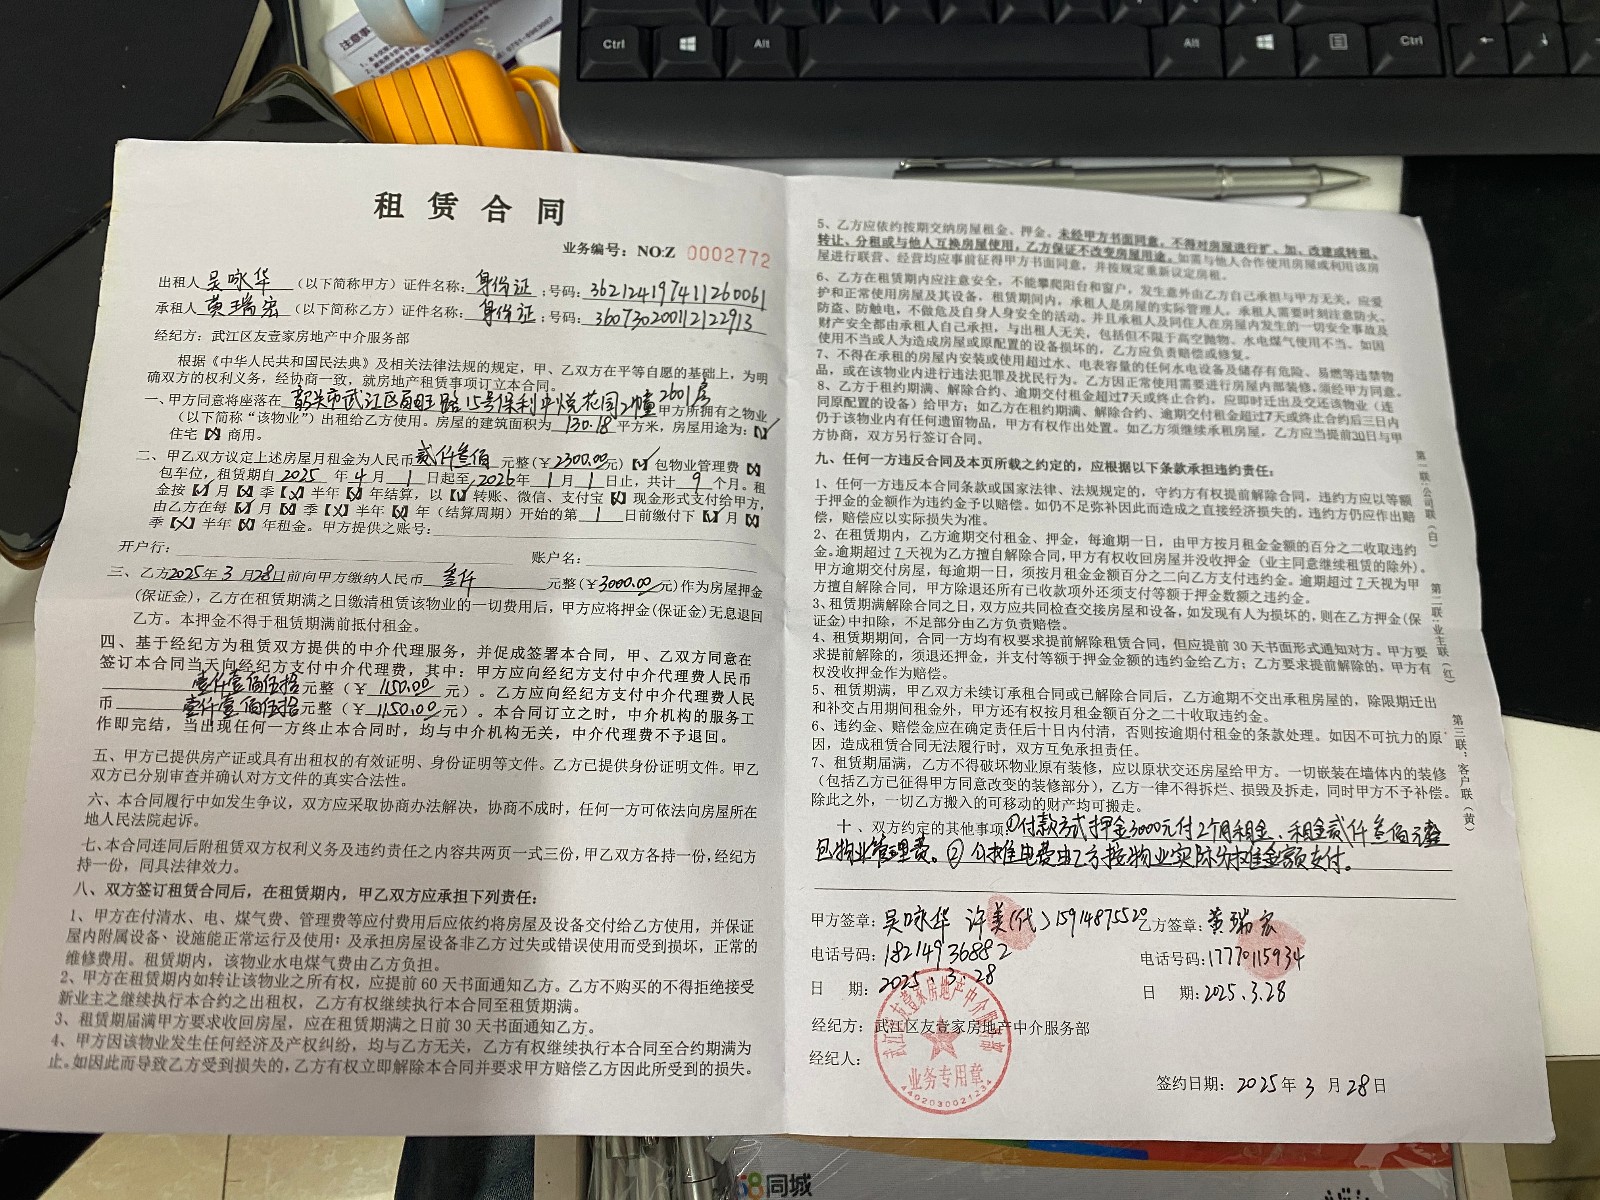 租赁合同
业务编号：NO:Z 0002772
出租人 吴咏华 （以下简称甲方）证件名称：身份证；号码：362124197411260061
承租人 黄瑞宏 （以下简称乙方）证件名称：身份证；号码：360730200112122913
经纪方：武江区友壹家房地产中介服务部
根据《中华人民共和国民法典》及相关法律法规的规定，甲、乙双方在平等自愿的基础上，为明
确双方的权利义务，经协商一致，就房地产租赁事项订立本合同。
一、甲方同意将座落在 韶关市武江区 路15号保利中悦花园2幢2601房 甲方所拥有之物业
（以下简称“该物业”）出租给乙方使用。房屋的建筑面积为 130.18 平方米，房屋用途为：【√】
住宅【×】商用。
二、甲乙双方议定上述房屋月租金为人民币 贰仟叁佰 元整（￥2300.00元）【√】包物业管理费【×】
包车位，租赁期自 2025 年 4 月 1 日起至 2026 年 1 月 1 日止，共计 9 个月。租
金按【√】月【×】季【×】半年【×】年结算，以【√】转账、微信、支付宝【×】现金形式支付给甲方，
由乙方在每【√】月【×】季【×】半年【×】年（结算周期）开始的第 1 日前缴付下【√】月【×】
季【×】半年【×】年租金。甲方提供之账号：
开户行： 账户名：
三、乙方2025年3月28日前向甲方缴纳人民币 叁仟 元整（￥3000.00元）作为房屋押金
(保证金)，乙方在租赁期满之日缴清租赁该物业的一切费用后，甲方应将押金(保证金)无息退回
乙方。本押金不得于租赁期满前抵付租金。
四、基于经纪方为租赁双方提供的中介代理服务，并促成签署本合同，甲、乙双方同意在
签订本合同当天向经纪方支付中介代理费，其中：甲方应向经纪方支付中介代理费人民币
壹仟壹佰伍拾元整（￥ 1150.00 元）。乙方应向经纪方支付中介代理费人民
币 壹仟壹佰伍拾元整（￥ 1150.00 元）。本合同订立之时，中介机构的服务工
作即完结，当出现任何一方终止本合同时，均与中介机构无关，中介代理费不予退回。
五、甲方已提供房产证或具有出租权的有效证明、身份证明等文件。乙方已提供身份证明文件。甲乙
双方已分别审查并确认对方文件的真实合法性。
六、本合同履行中如发生争议，双方应采取协商办法解决，协商不成时，任何一方可依法向房屋所在
地人民法院起诉。
七、本合同连同后附租赁双方权利义务及违约责任之内容共两页一式三份，甲乙双方各持一份，经纪方
持一份，同具法律效力。
八、双方签订租赁合同后，在租赁期内，甲乙双方应承担下列责任：
1、甲方在付清水、电、煤气费、管理费等应付费用后应依约将房屋及设备交付给乙方使用，并保证
屋内附属设备、设施能正常运行及使用；及承担房屋设备非乙方过失或错误使用而受到损坏，正常的
维修费用。租赁期内，该物业水电煤气费由乙方负担。
2、甲方在租赁期内如转让该物业之所有权，应提前 60 天书面通知乙方。乙方不购买的不得拒绝接受
新业主之继续执行本合约之出租权，乙方有权继续执行本合同至租赁期满。
3、租赁期届满甲方要求收回房屋，应在租赁期满之日前 30 天书面通知乙方。
4、甲方因该物业发生任何经济及产权纠纷，均与乙方无关，乙方有权继续执行本合同至合约期满为
止。如因此而导致乙方受到损失的，乙方有权立即解除本合同并要求甲方赔偿乙方因此所受到的损失。
5、乙方应依约按期交纳房屋租金、押金，未经甲方书面同意，不得对房屋进行扩、加、改建或转租、
转让、分租或与他人互换房屋使用，乙方保证不改变房屋用途。如需与他人合作使用房屋或利用该房
屋进行联营、经营均应事前征得甲方书面同意，并按规定重新议定房租。
6、乙方在租赁期内应注意安全，不能攀爬阳台和窗户，发生意外由乙方自己承担与甲方无关，应爱
护和正常使用房屋及其设备，租赁期间内，承租人是房屋的实际管理人，承租人需要时刻注意防火、
防盗、防触电，不做危及自身人身安全的活动。并且承租人及同住人在房屋内发生的一切安全事故及
财产安全都由承租人自己承担，与出租人无关，包括但不限于高空抛物、水电煤气使用不当、如因
使用不当或人为造成房屋或原配置的设备损坏的，乙方应负责赔偿或修复。
7、不得在承租的房屋内安装或使用超过水、电表容量的任何水电设备及储存有危险、易燃等违禁物
品，或在该物业内进行违法犯罪及扰民行为。乙方因正常使用需要进行房屋内部装修，须经甲方同意。
8、乙方于租约期满、解除合约、逾期交付租金超过7天或终止合约，应即时迁出及交还该物业（连
同原配置的设备）给甲方；如乙方在租约期满、解除合约、逾期交付租金超过7天或终止合约后三日内
仍于该物业内有任何遗留物品，甲方有权作出处置。如乙方须继续承租房屋，乙方应当提前30日与甲
方协商，双方另行签订合同。
九、任何一方违反合同及本页所载之约定的，应根据以下条款承担违约责任：
1、任何一方违反本合同条款或国家法律、法规规定的，守约方有权提前解除合同，违约方应以等额
于押金的金额作为违约金予以赔偿。如仍不足弥补因此而造成之直接经济损失的，违约方仍应作出赔
偿，赔偿应以实际损失为准。
2、在租赁期内，乙方逾期交付租金、押金，每逾期一日，由甲方按月租金金额的百分之二收取违约
金。逾期超过 7 天视为乙方擅自解除合同，甲方有权收回房屋并没收押金（业主同意继续租赁的除外）。
甲方逾期交付房屋，每逾期一日，须按月租金金额百分之二向乙方支付违约金。逾期超过 7 天视为甲
方擅自解除合同，甲方除退还所有已收款项外还须支付等额于押金数额之违约金。
3、租赁期满解除合同之日，双方应共同检查交接房屋和设备，如发现有人为损坏的，则在乙方押金(保
证金)中扣除，不足部分由乙方负责赔偿。
4、租赁期期间，合同一方均有权要求提前解除租赁合同，但应提前 30 天书面形式通知对方。甲方要
求提前解除的，须退还押金，并支付等额于押金金额的违约金给乙方；乙方要求提前解除的，甲方有
权没收押金作为赔偿。
5、租赁期满，甲乙双方未续订承租合同或已解除合同后，乙方逾期不交出承租房屋的，除限期迁出
和补交占用期间租金外，甲方还有权按月租金金额百分之二十收取违约金。
6、违约金、赔偿金应在确定责任后十日内付清，否则按逾期付租金的条款处理。如因不可抗力的原
因，造成租赁合同无法履行时，双方互免承担责任。
7、租赁期届满，乙方不得破坏物业原有装修，应以原状交还房屋给甲方。一切嵌装在墙体内的装修
（包括乙方已征得甲方同意改变的装修部分），乙方一律不得拆烂、损毁及拆走，同时甲方不予补偿。
除此之外，一切乙方搬入的可移动的财产均可搬走。
十、双方约定的其他事项：①付款方式押金3000元付2个月租金、租金贰仟叁佰元整
包物业管理费。② 公摊电费由乙方按物业实际分摊金额支付。
甲方签章：吴咏华 许美(代)15914875520 乙方签章：黄瑞宏
电话号码：18214936882 电话号码：17770115934
日 期：2025.3.28 日 期：2025.3.28
经纪方：武江区友壹家房地产中介服务部
经纪人：
签约日期：2025年 3 月 28日
武江区友壹家房地产中介服务部
业务专用章
第一联：公司联（白）
第二联：业主联（红）
第三联：客户联（黄）
Ctrl Alt Alt Ctrl
58同城